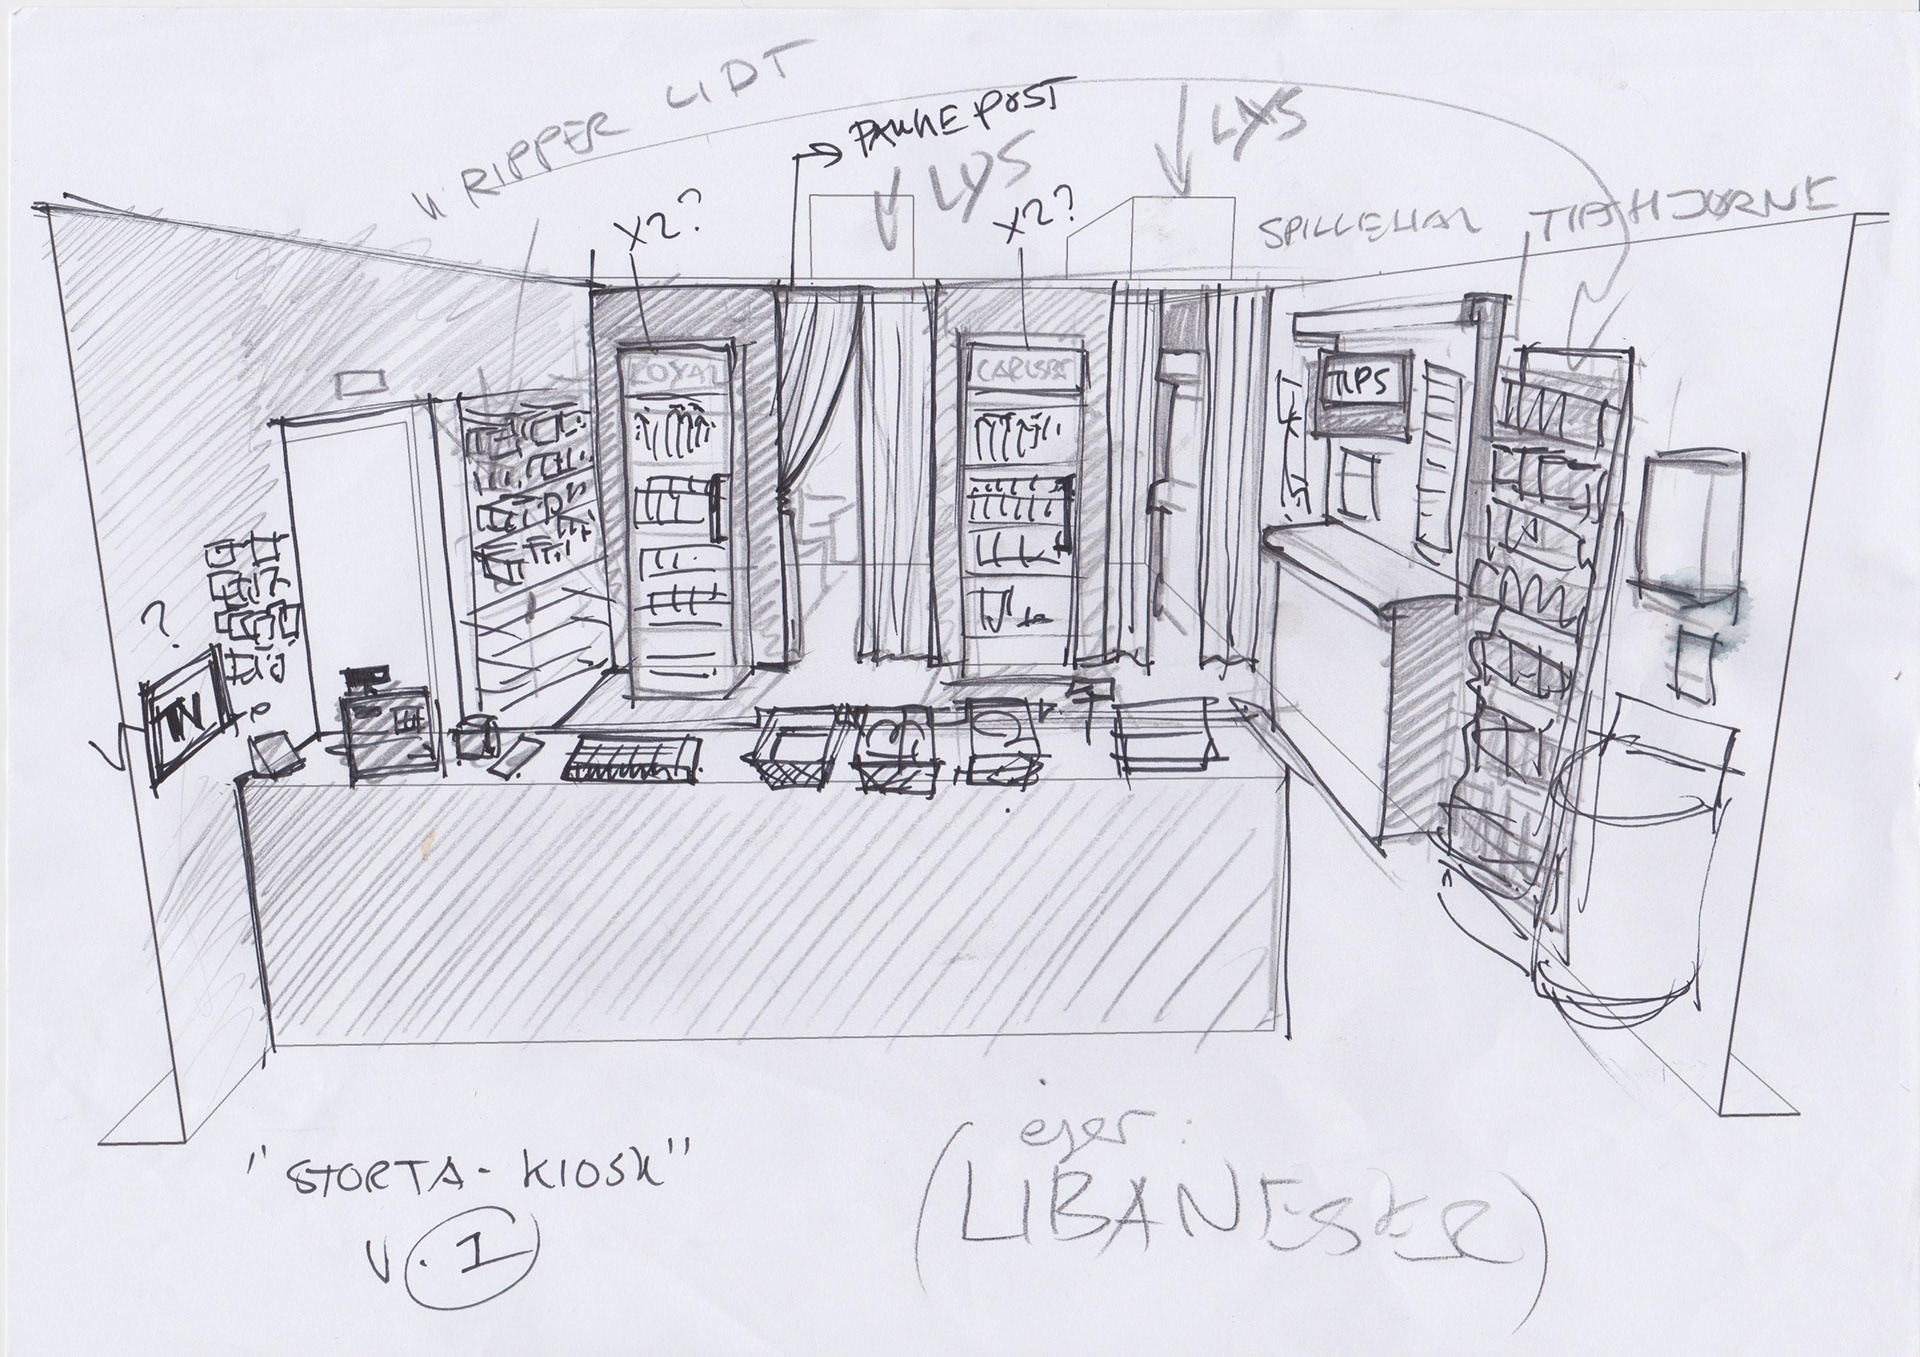 VIPPER LIDT
PAKKE POST
LYS
LYS
X2?
X2?
TIPSHJØRNE
ROYAL
CARLSBE
TIPS
?
TV
"STORTA-KIOSK"
V.1
(ejer:
LIBANESER)